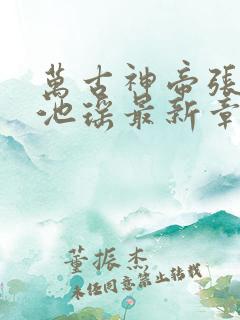 萬古神帝張
池瑤最新章
董振杰
未經同意禁止轉載